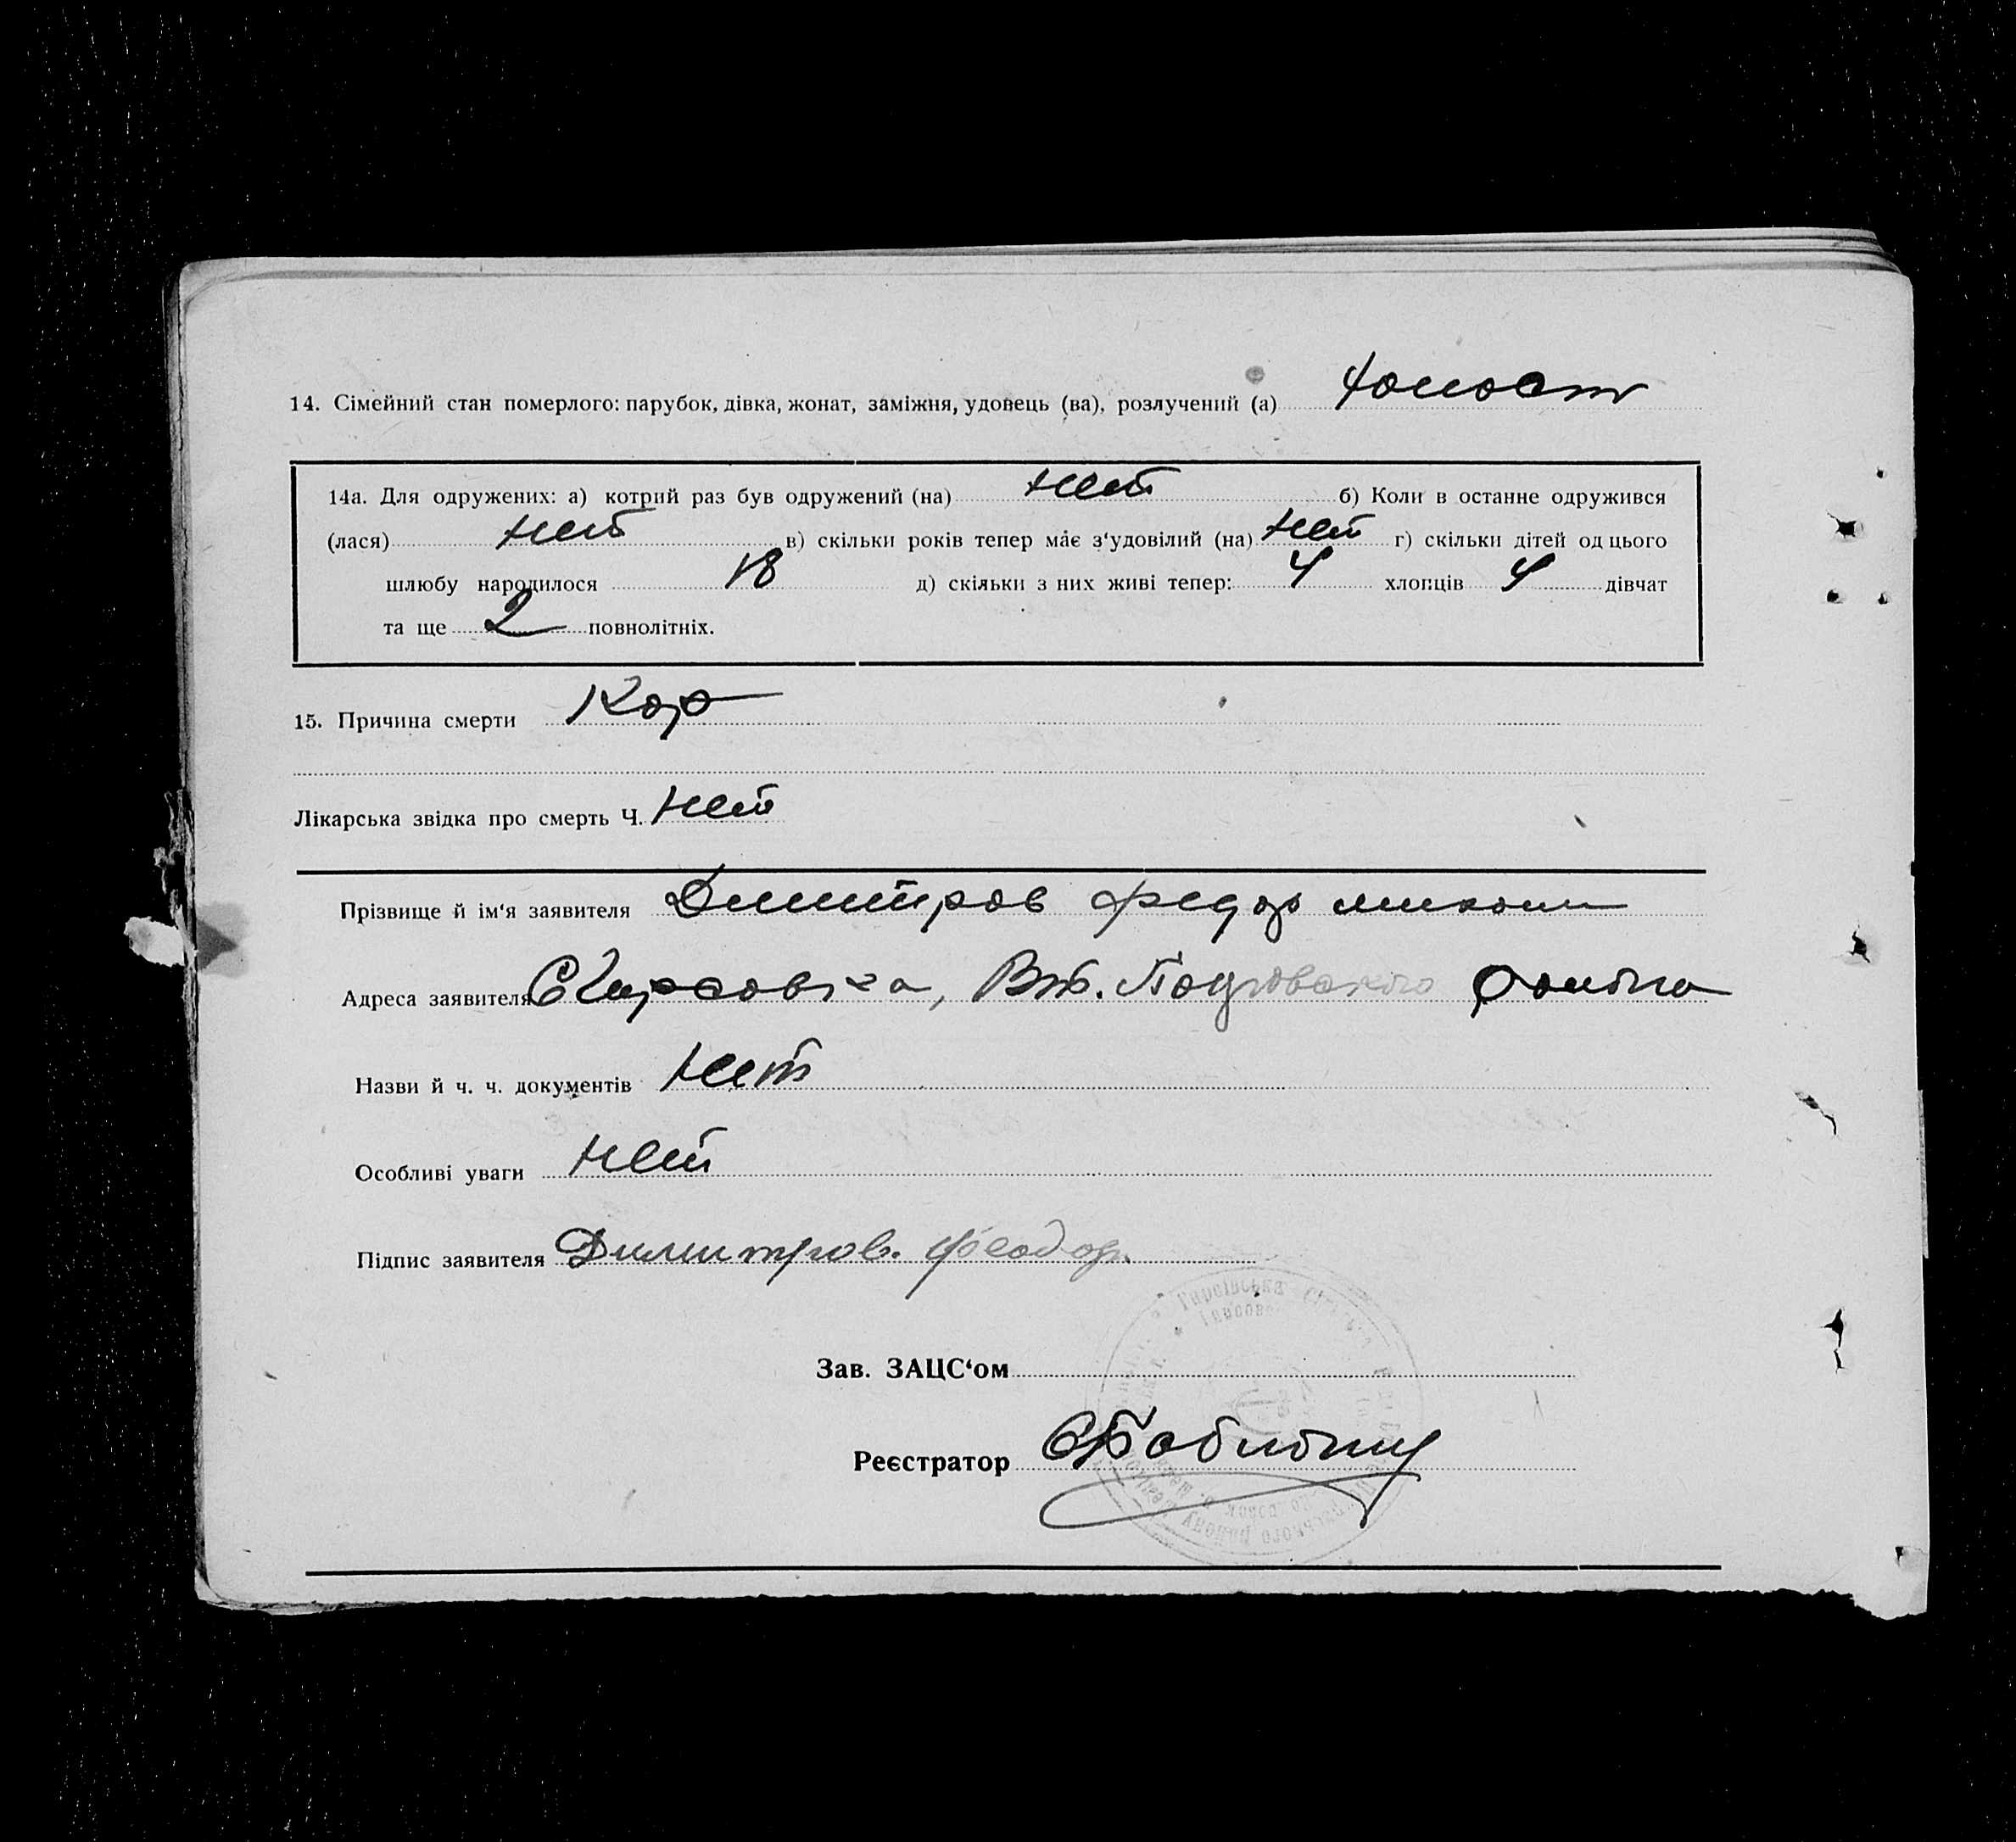 14. Сімейний стан померлого: парубок, дівка, жонат, заміжня, удовець (ва), розлучений (а)
14а. Для одружених: а) котрий раз був одружений (на) нет б) Коли в останне одружився
(лася) нет в) скільки років тепер має з'удовілий (на) нет г) скільки дітей од цього
шлюбу народилося 18 д) скільки з них живі тепер: 4 хлопців 4 дівчат
та ще 2 повнолітніх.
15. Причина смерти Кор
Лікарська звідка про смерть Ч. нет
Прізвище й ім'я заявителя Димитров Федор
Адреса заявителя
Назви й ч. ч. документів нет
Особливі уваги нет
Підпис заявителя Димитров. Феодор.
Зав. ЗАЦС'ом
Реєстратор